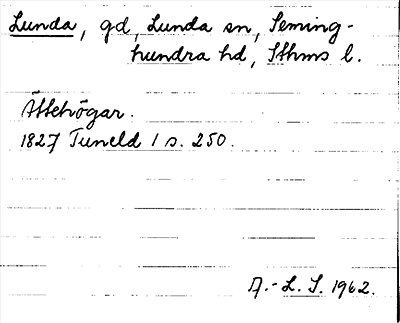 Lunda, gd, Lunda sn, Seming-
hundra hd, Sthms l.
Ättehögar.
1827 Tuneld 1 s. 250.
A.-L. S. 1962.